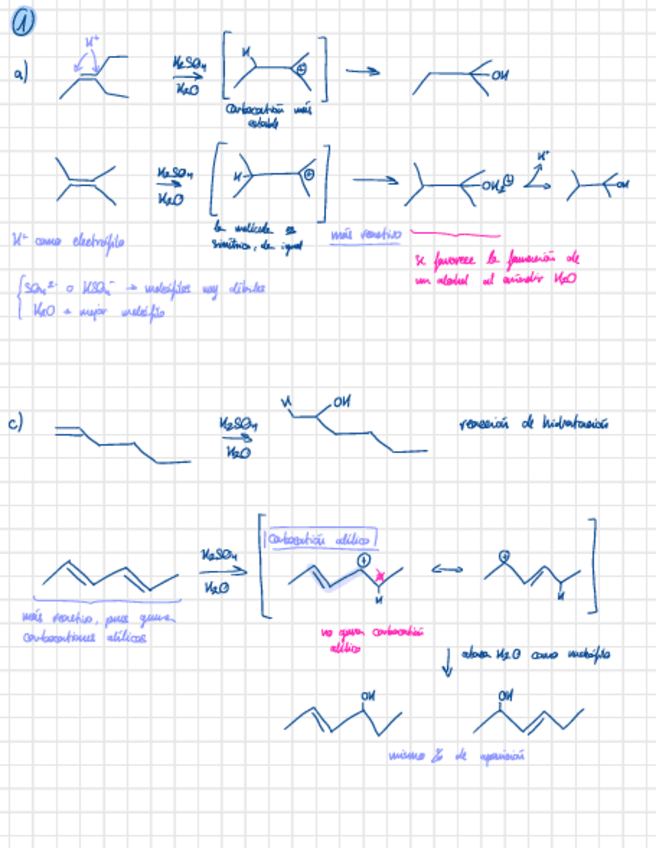 1
a)
H⁺
H₂SO₄
H₂O
H
⊕
OH
carbocatión más
estable
H₂SO₄
H₂O
H
⊕
OH₂⊕
H⁺
OH
la molécula es
simétrica, da igual
más reactivo
H⁺ como electrófilo
se favorece la formación de
un alcohol al añadir H₂O
SO₄²⁻ o HSO₄⁻ → nucleófilos muy débiles
H₂O → mejor nucleófilo
c)
H₂SO₄
H₂O
H
OH
reacción de hidratación
H₂SO₄
H₂O
carbocatión alílico
⊕
H
⊕
H
más reactivo, pues genera
carbocationes alílicos
no genera carbocatión
alílico
ataca H₂O como nucleófilo
OH
OH
mismo % de aparición